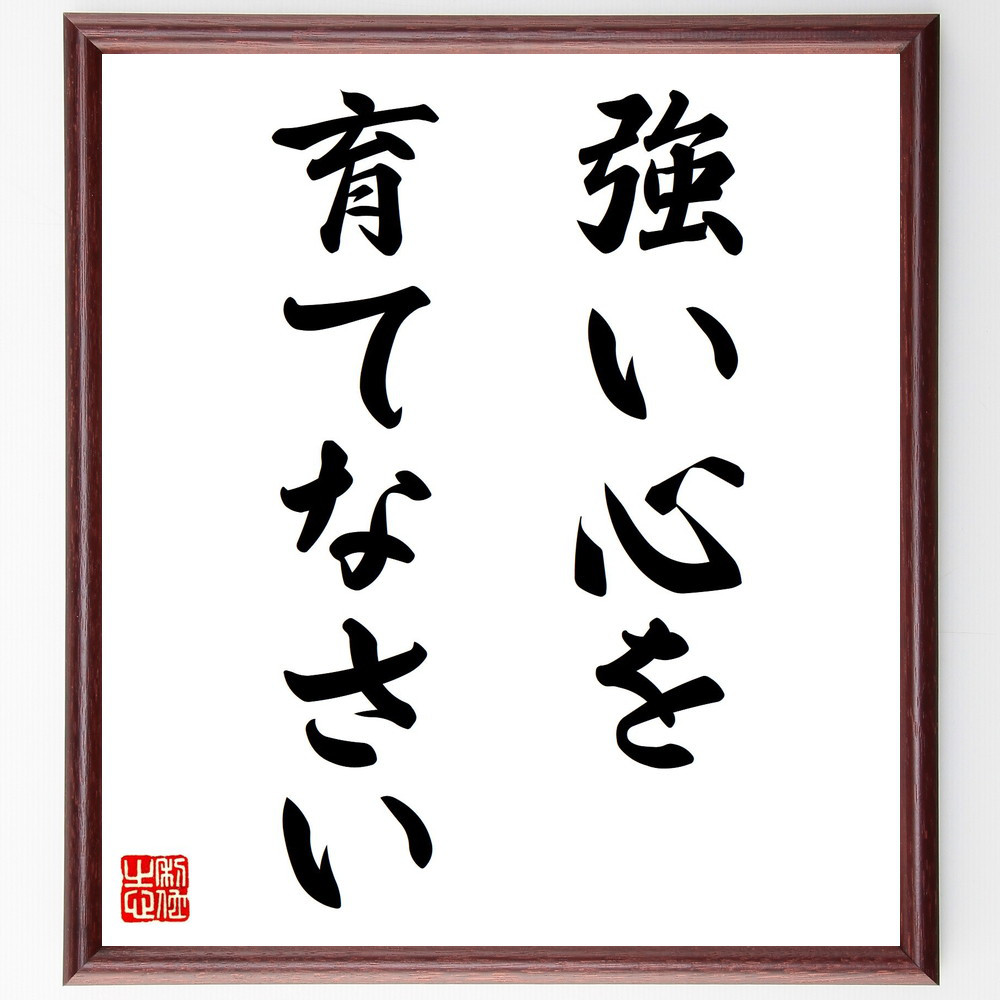 強い心を
育てなさい